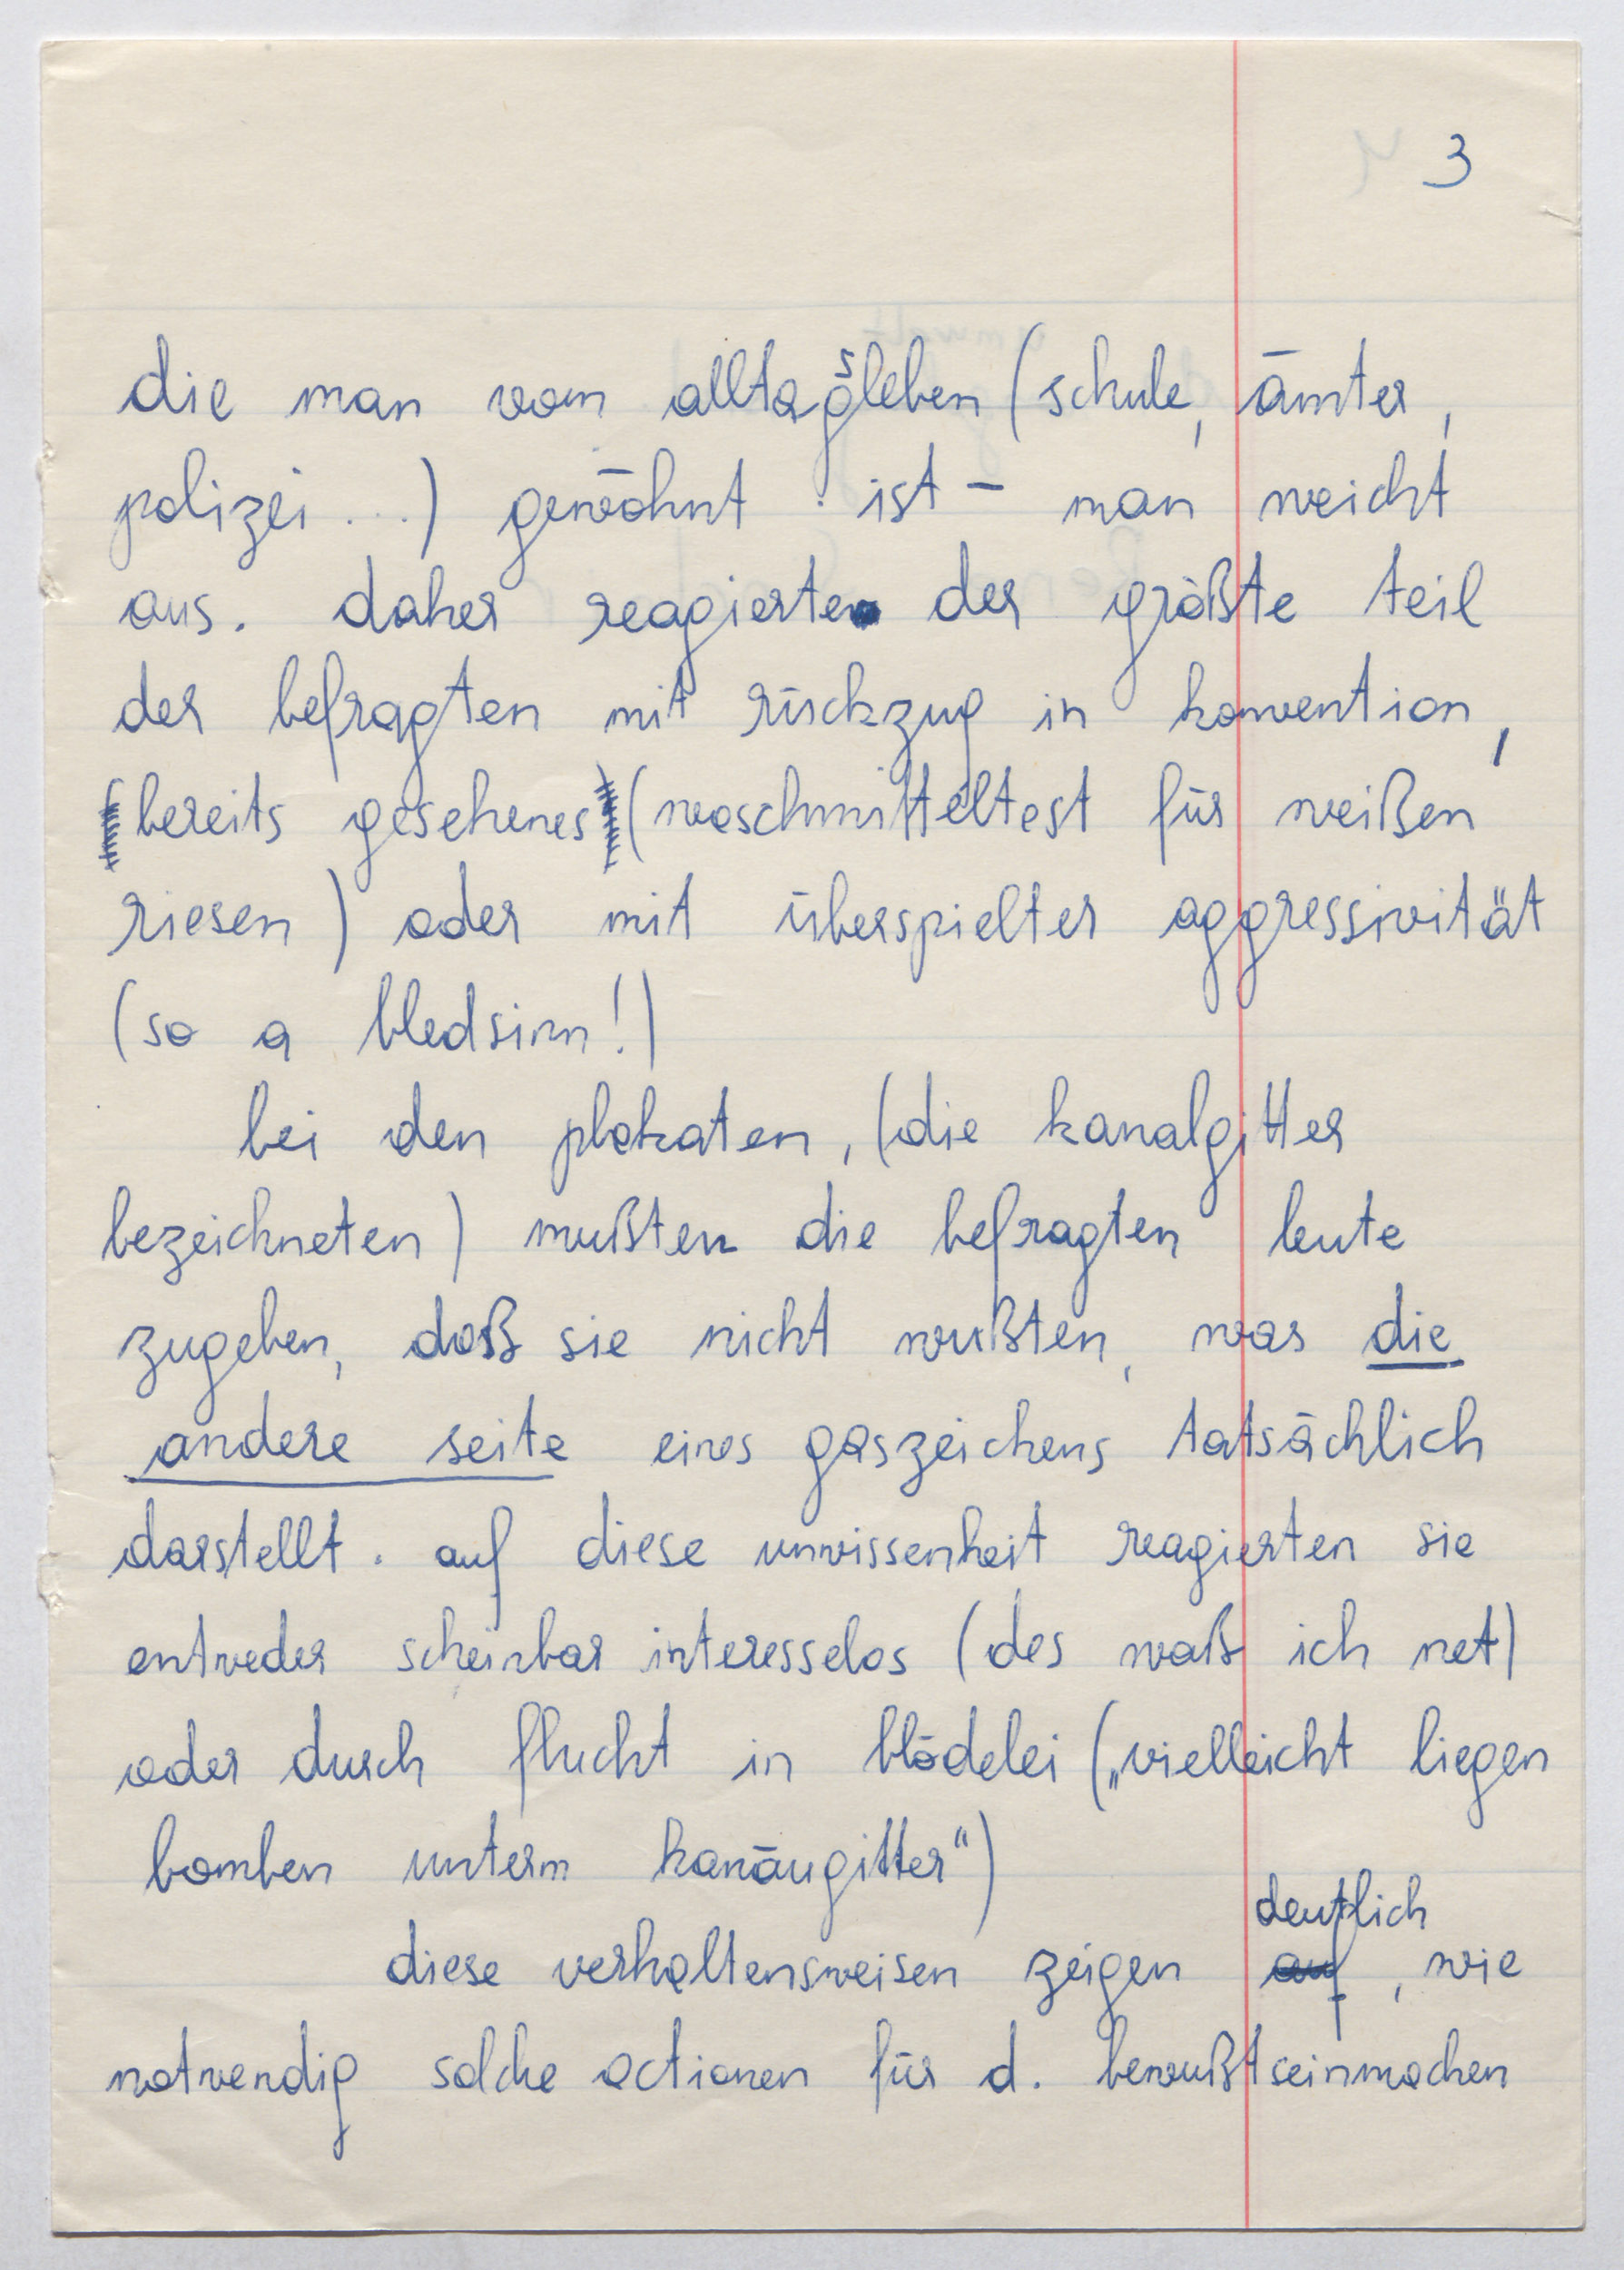 3
die man vom alltagsleben (schule, ämter,
polizei ...) gewöhnt ist – man weicht
aus. daher reagierte der größte teil
der befragten mit rückzug in konvention,
bereits gesehenes (waschmitteltest für weißen
riesen) oder mit überspielter aggressivität
(so a bledsinn!)
bei den plakaten, (die kanalgitter
bezeichneten) mußten die befragten leute
zugeben, daß sie nicht wußten, was die
andere seite eines gaszeichens tatsächlich
darstellt. auf diese unwissenheit reagierten sie
entweder scheinbar interesselos (des waß ich net)
oder durch flucht in blödelei („vielleicht liegen
bomben unterm kanäugitter“)
deutlich
diese verhaltensweisen zeigen auf, wie
notwendig solche actionen für d. bewußtseinmachen